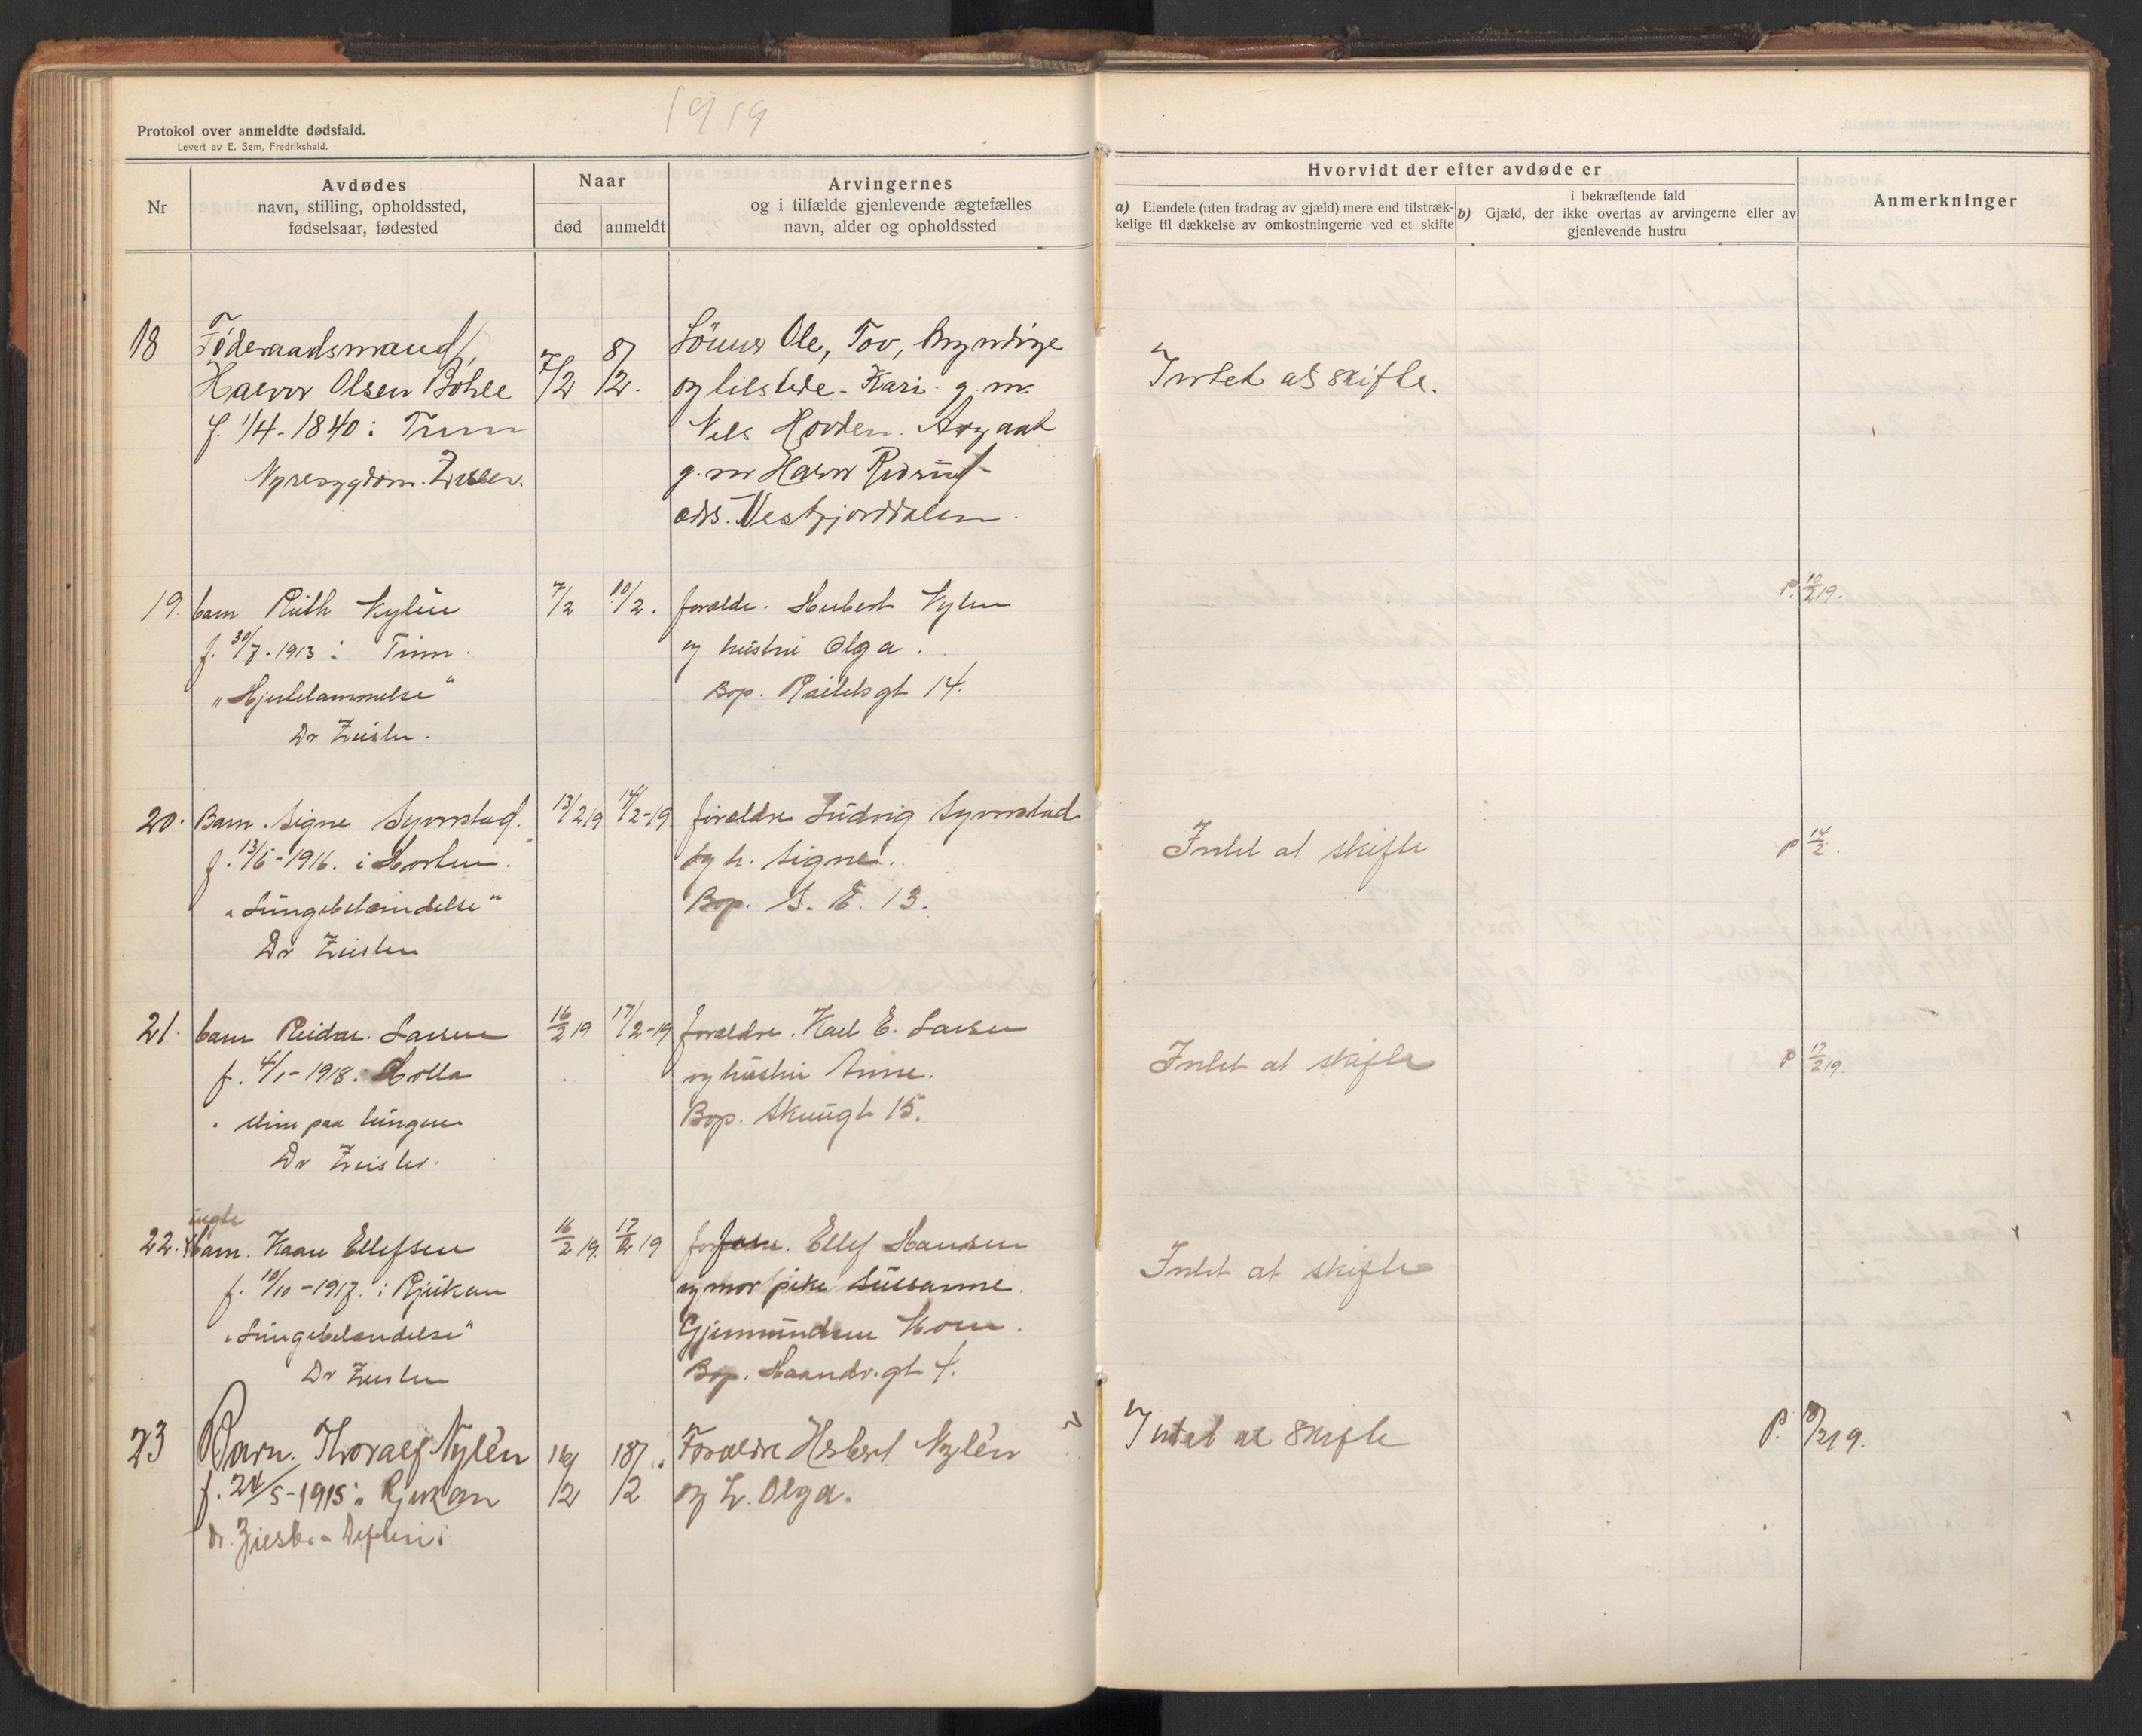 1919
Protokol over anmeldte dødsfald.
Levert av E. Sem, Fredrikshald.
Nr
Avdødes
navn, stilling, opholdssted,
fødselsaar, fødested
Naar
død
anmeldt
Arvingernes
og i tilfælde gjenlevende ægtefælles
navn, alder og opholdssted
Hvorvidt der efter avdøde er
a) Eiendele (uten fradrag av gjæld) mere end tilstræk-
kelige til dækkelse av omkostningerne ved et skifte
i bekræftende fald
b) Gjæld, der ikke overtas av arvingerne eller av
gjenlevende hustru
Anmerkninger
18
Føderaadsmand,
Halvor Olsen Bøhle
f. 1/4-1840 i Tinn
Nyresygdom.
7/2
8/2.
Sönner Ole, Tov, myndige
og tilstede - Kari g.m.
Nels Hovden. Aagaat
g.m Halvor
adr. Vestfjorddalen.
Intet at skifte.
19.
barn Ruth Nylén
f. 30/7-1913 i Tinn.
"Hjertelammelse"
Dr Zeisler.
7/2
10/2.
forældr. Herbert Nylen
og hustru Olga.
Bop. gt 14.
P. 10/2 19.
20.
Barn. Signe Synnstad.
f. 13/6-1916. i Horten.
"Lungebetændelse"
Dr Zeisler
13/2 19
14/2-19
forældre Ludvig Synnstad
og h. Signe.
Bop. S. E. 13.
Intet at skifte
P 14/2.
21.
barn Reidar Larsen
f. 4/1-1918. Holla
slim paa lungen
Dr Zeisler.
16/2 19
17/2-19
forældre. Karl E. Larsen
og hustru Anne.
Bop. 15.
Intet at skifte
P 17/2 19.
22.
uegte
barn. Kaare Ellefsen
f. 10/10-1917. i Rjukan
"Lungebetændelse"
Dr Zeisler
16/2 19.
17/2 19
Ellef Hansen
og mor pike Susanne.
Gjermundsen
Bop. Haandv.gt 4.
Intet at skifte
23
Barn. Thoralf Nylén
f. 24/5-1915 i Rjukan
Dr. Difteri
16/2
18/2.
Forældre Herbert Nylén
og h. Olga.
Intet at skifte
P. 18/2 19.